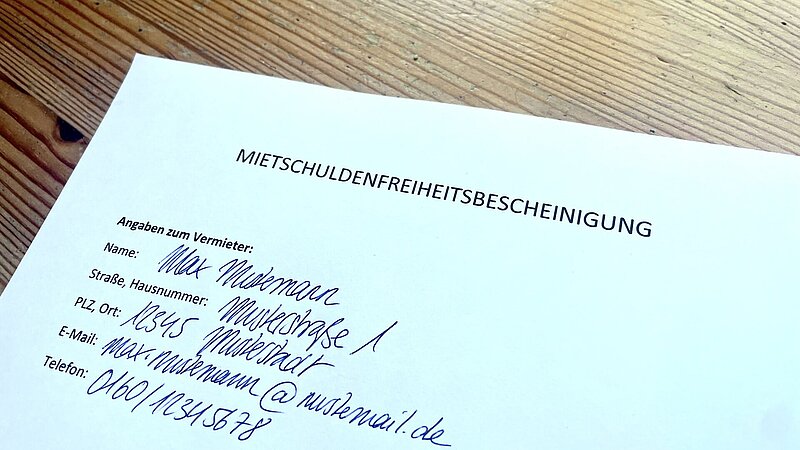 MIETSCHULDENFREIHEITSBESCHEINIGUNG
Angaben zum Vermieter:
Name: Max Mustermann
Straße, Hausnummer: Musterstraße 1
PLZ, Ort: 12345 Musterstadt
E-Mail: max.mustermann@mustermail.de
Telefon: 0160/12345678